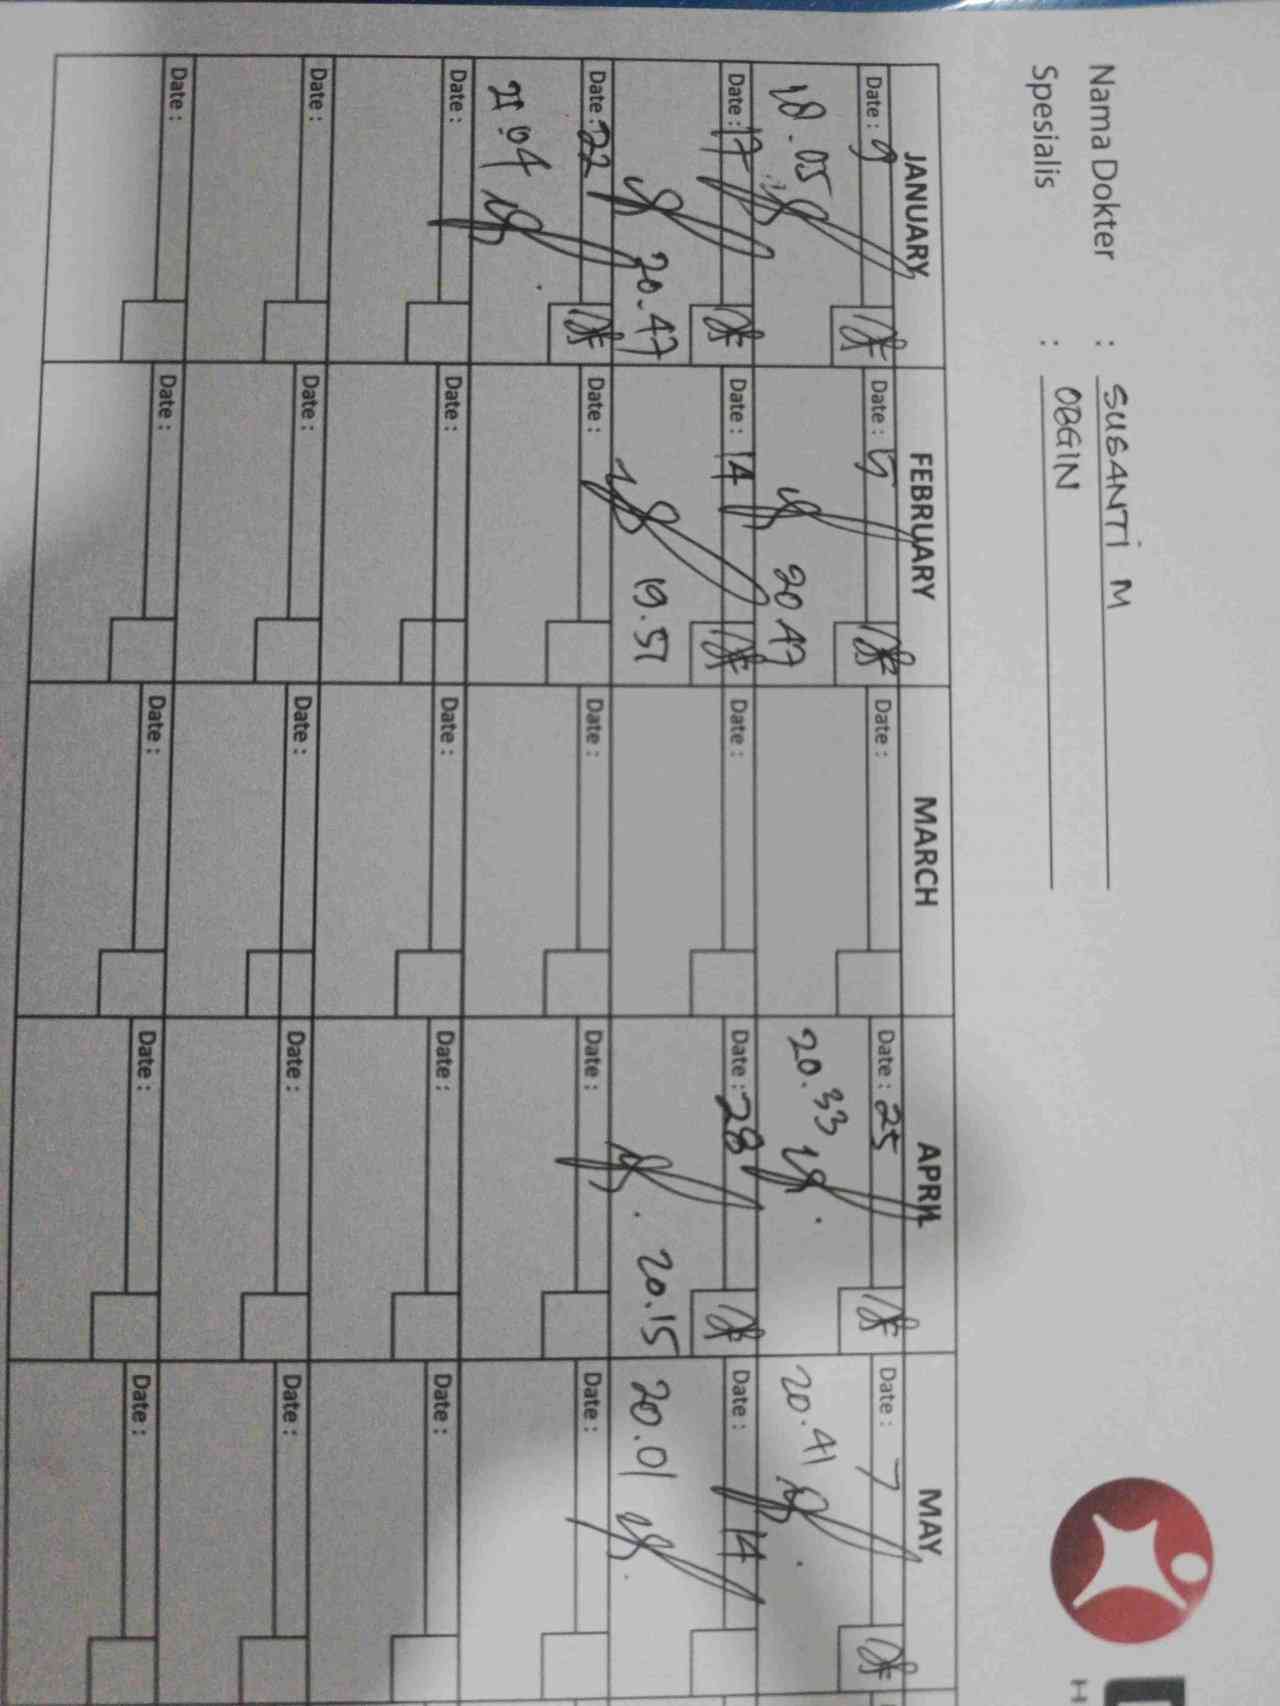 Nama Dokter : SUSANTI M
Spesialis : OBGIN
JANUARY FEBRUARY MARCH APRIL MAY
Date : 9 Date : 5 Date : Date : 25 Date : 7
18.05 20 47 20.33 20.41
Date : 17 Date : 14 Date : Date : 28 Date : 14
20.47 19.57 20.15 20.01
Date : 22 Date : Date : Date : Date :
21.04
Date : Date : Date : Date : Date :
Date : Date : Date : Date : Date :
Date : Date : Date : Date : Date :
H